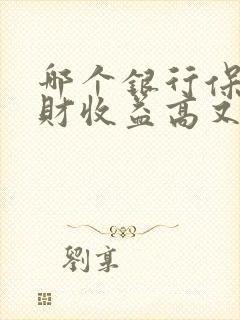 哪个银行保
财收益高又
劉享